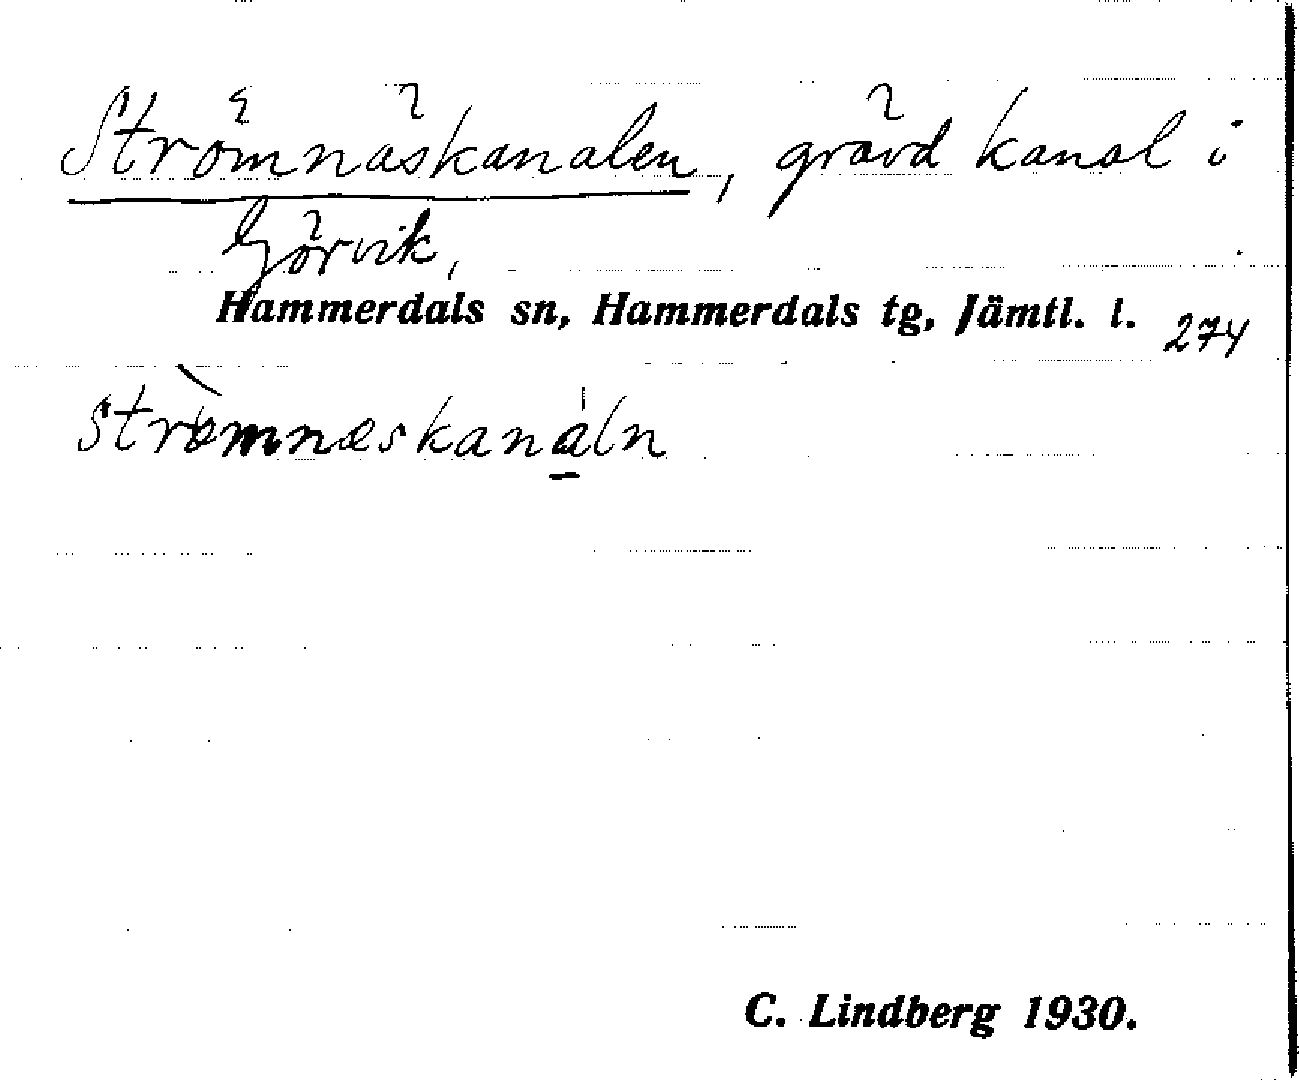 Strömnäskanalen, grävd kanal i
Görvik,
Hammerdals sn, Hammerdals tg, Jämtl. l. 274
Strèmnæskanáln
C. Lindberg 1930.